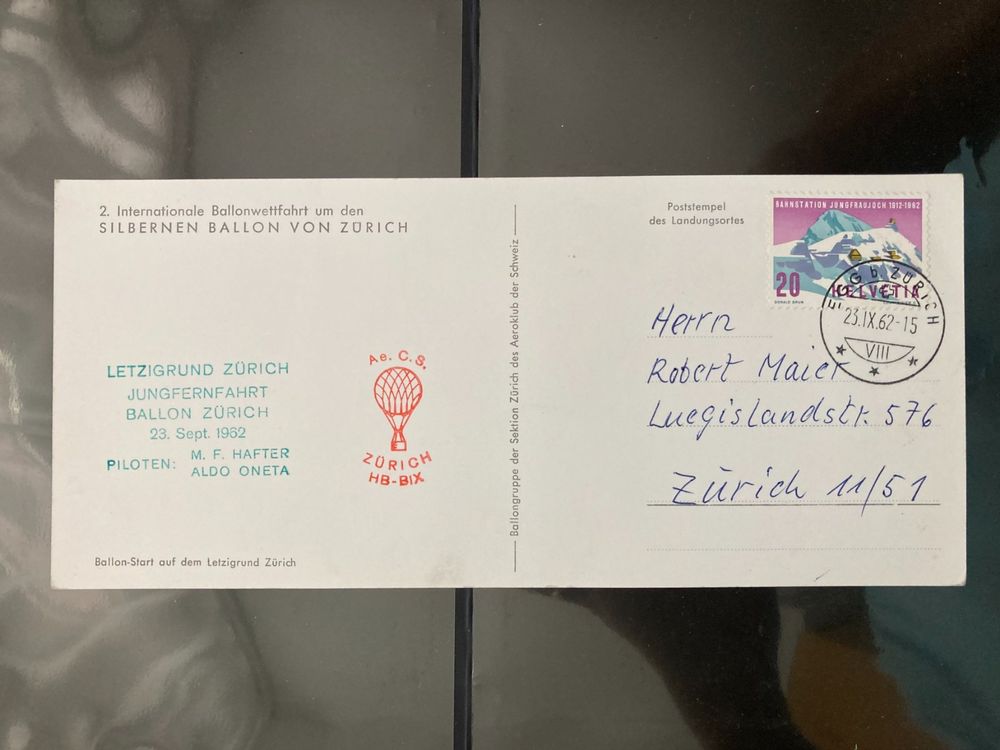 2. Internationale Ballonwettfahrt um den
SILBERNEN BALLON VON ZÜRICH
LETZIGRUND ZÜRICH
JUNGFERNFAHRT
BALLON ZÜRICH
23. Sept. 1962
PILOTEN: M. F. HAFTER
ALDO ONETA
Ae. C. S.
ZÜRICH
HB-BIX
Ballon-Start auf dem Letzigrund Zürich
Ballongruppe der Sektion Zürich des Aeroklub der Schweiz
Poststempel
des Landungsortes
BAHNSTATION JUNGFRAUJOCH 1912-1962
20 HELVETIA
DONALD BRUN
EGG b. ZÜRICH
23.IX.62-15
VIII
Herrn
Robert Maier
Luegislandstr. 576
Zürich 11/51